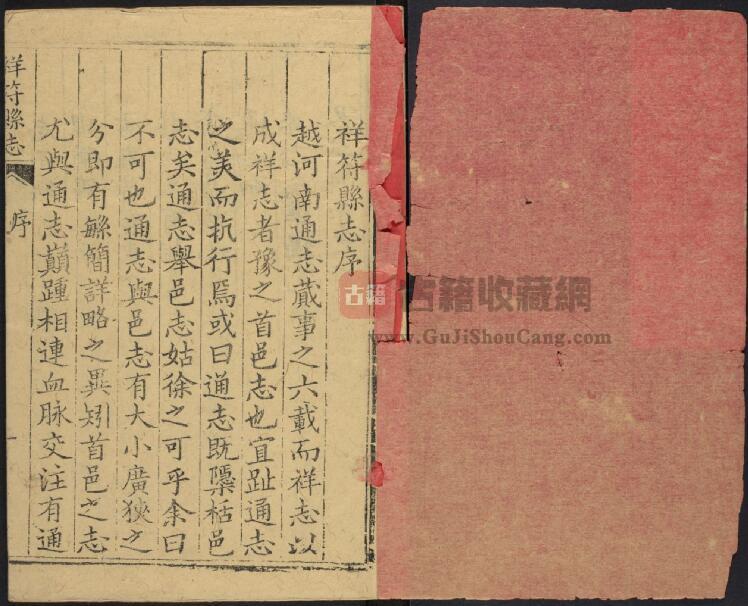 祥符縣志序
越河南通志蕆事之六載而祥志以
成祥志者豫之首邑志也宜趾通志
之美而抗行焉或曰通志既櫽栝邑
志矣通志舉邑志姑徐之可乎余曰
不可也通志與邑志有大小廣狹之
分即有緐簡詳略之異矧首邑之志
尤與通志巔踵相連血脉交注有通
祥符縣志
序
一
古籍
古籍收藏網
www.GuJiShouCang.com